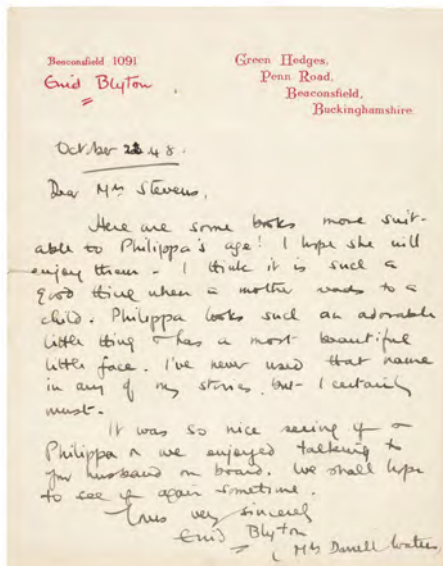 Beaconsfield 1091
Enid Blyton
Green Hedges,
Penn Road,
Beaconsfield,
Buckinghamshire
October 48.
Dear Mrs Stevens,
Here are some books more suit-
able to Philippa's age! I hope she will
enjoy them - I think it is such a
good thing when a mother reads to a
child. Philippa looks such an adorable
little thing & has a most beautiful
little face. I've never used that name
in any of my stories, but I certainly
must.
It was so nice seeing you &
Philippa & we enjoyed talking to
your husband on board. We shall hope
to see you again sometime.
Yours very sincerely
Enid Blyton
(Mrs Darrell Waters)